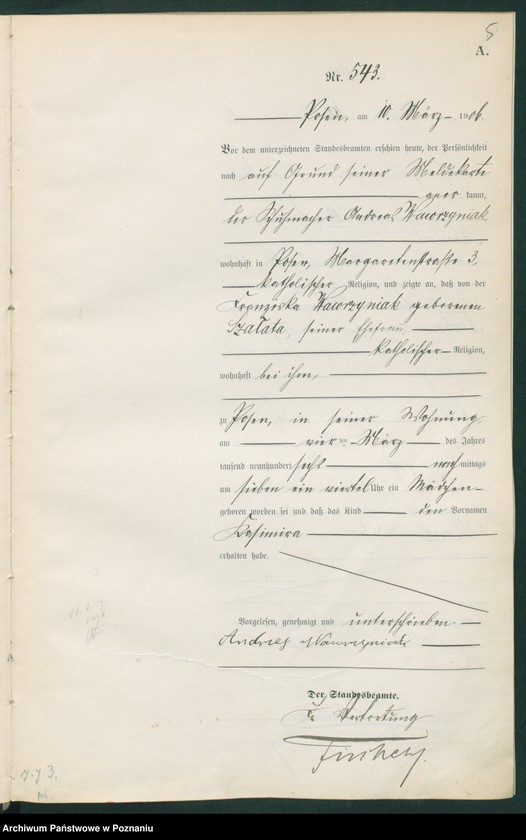 5
A.
Nr. 543.
Posen, am 10. März 1906.
Vor dem unterzeichneten Standesbeamten erschien heute, der Persönlichkeit
nach auf Grund seiner Meldekarte
kannt,
der Schuhmacher Andreas Wawrzyniak
wohnhaft in Posen, Margaretenstraße 3,
katholischer Religion, und zeigte an, daß von der
Franziska Wawrzyniak geborenen
Szałata, seiner Ehefrau,
katholischer Religion,
wohnhaft bei ihm,
zu Posen, in seiner Wohnung,
am vier ten März des Jahres
tausend neunhundert sechs nachmittags
um sieben ein viertel Uhr ein Mädchen
geboren worden sei und daß das Kind den Vornamen
Kasimira
erhalten habe.
Vorgelesen, genehmigt und unterschrieben.
Andreas Wawrzyniak
Der Standesbeamte.
In Vertretung
Archiwum Państwowe w Poznaniu